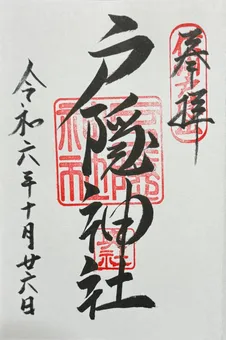 奉拝
戸隠神社
令和六年十月廿六日